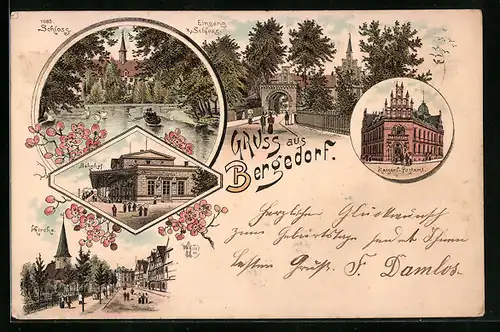 Schloss
Eingang
z. Schloss
GRUSS aus
Bergedorf.
Kaiserl. Postamt.
Bahnhof
Kirche
Herzlichen Glückwunsch
zum Geburtstage sendet Ihnen
besten Gruss. F. Damlos.